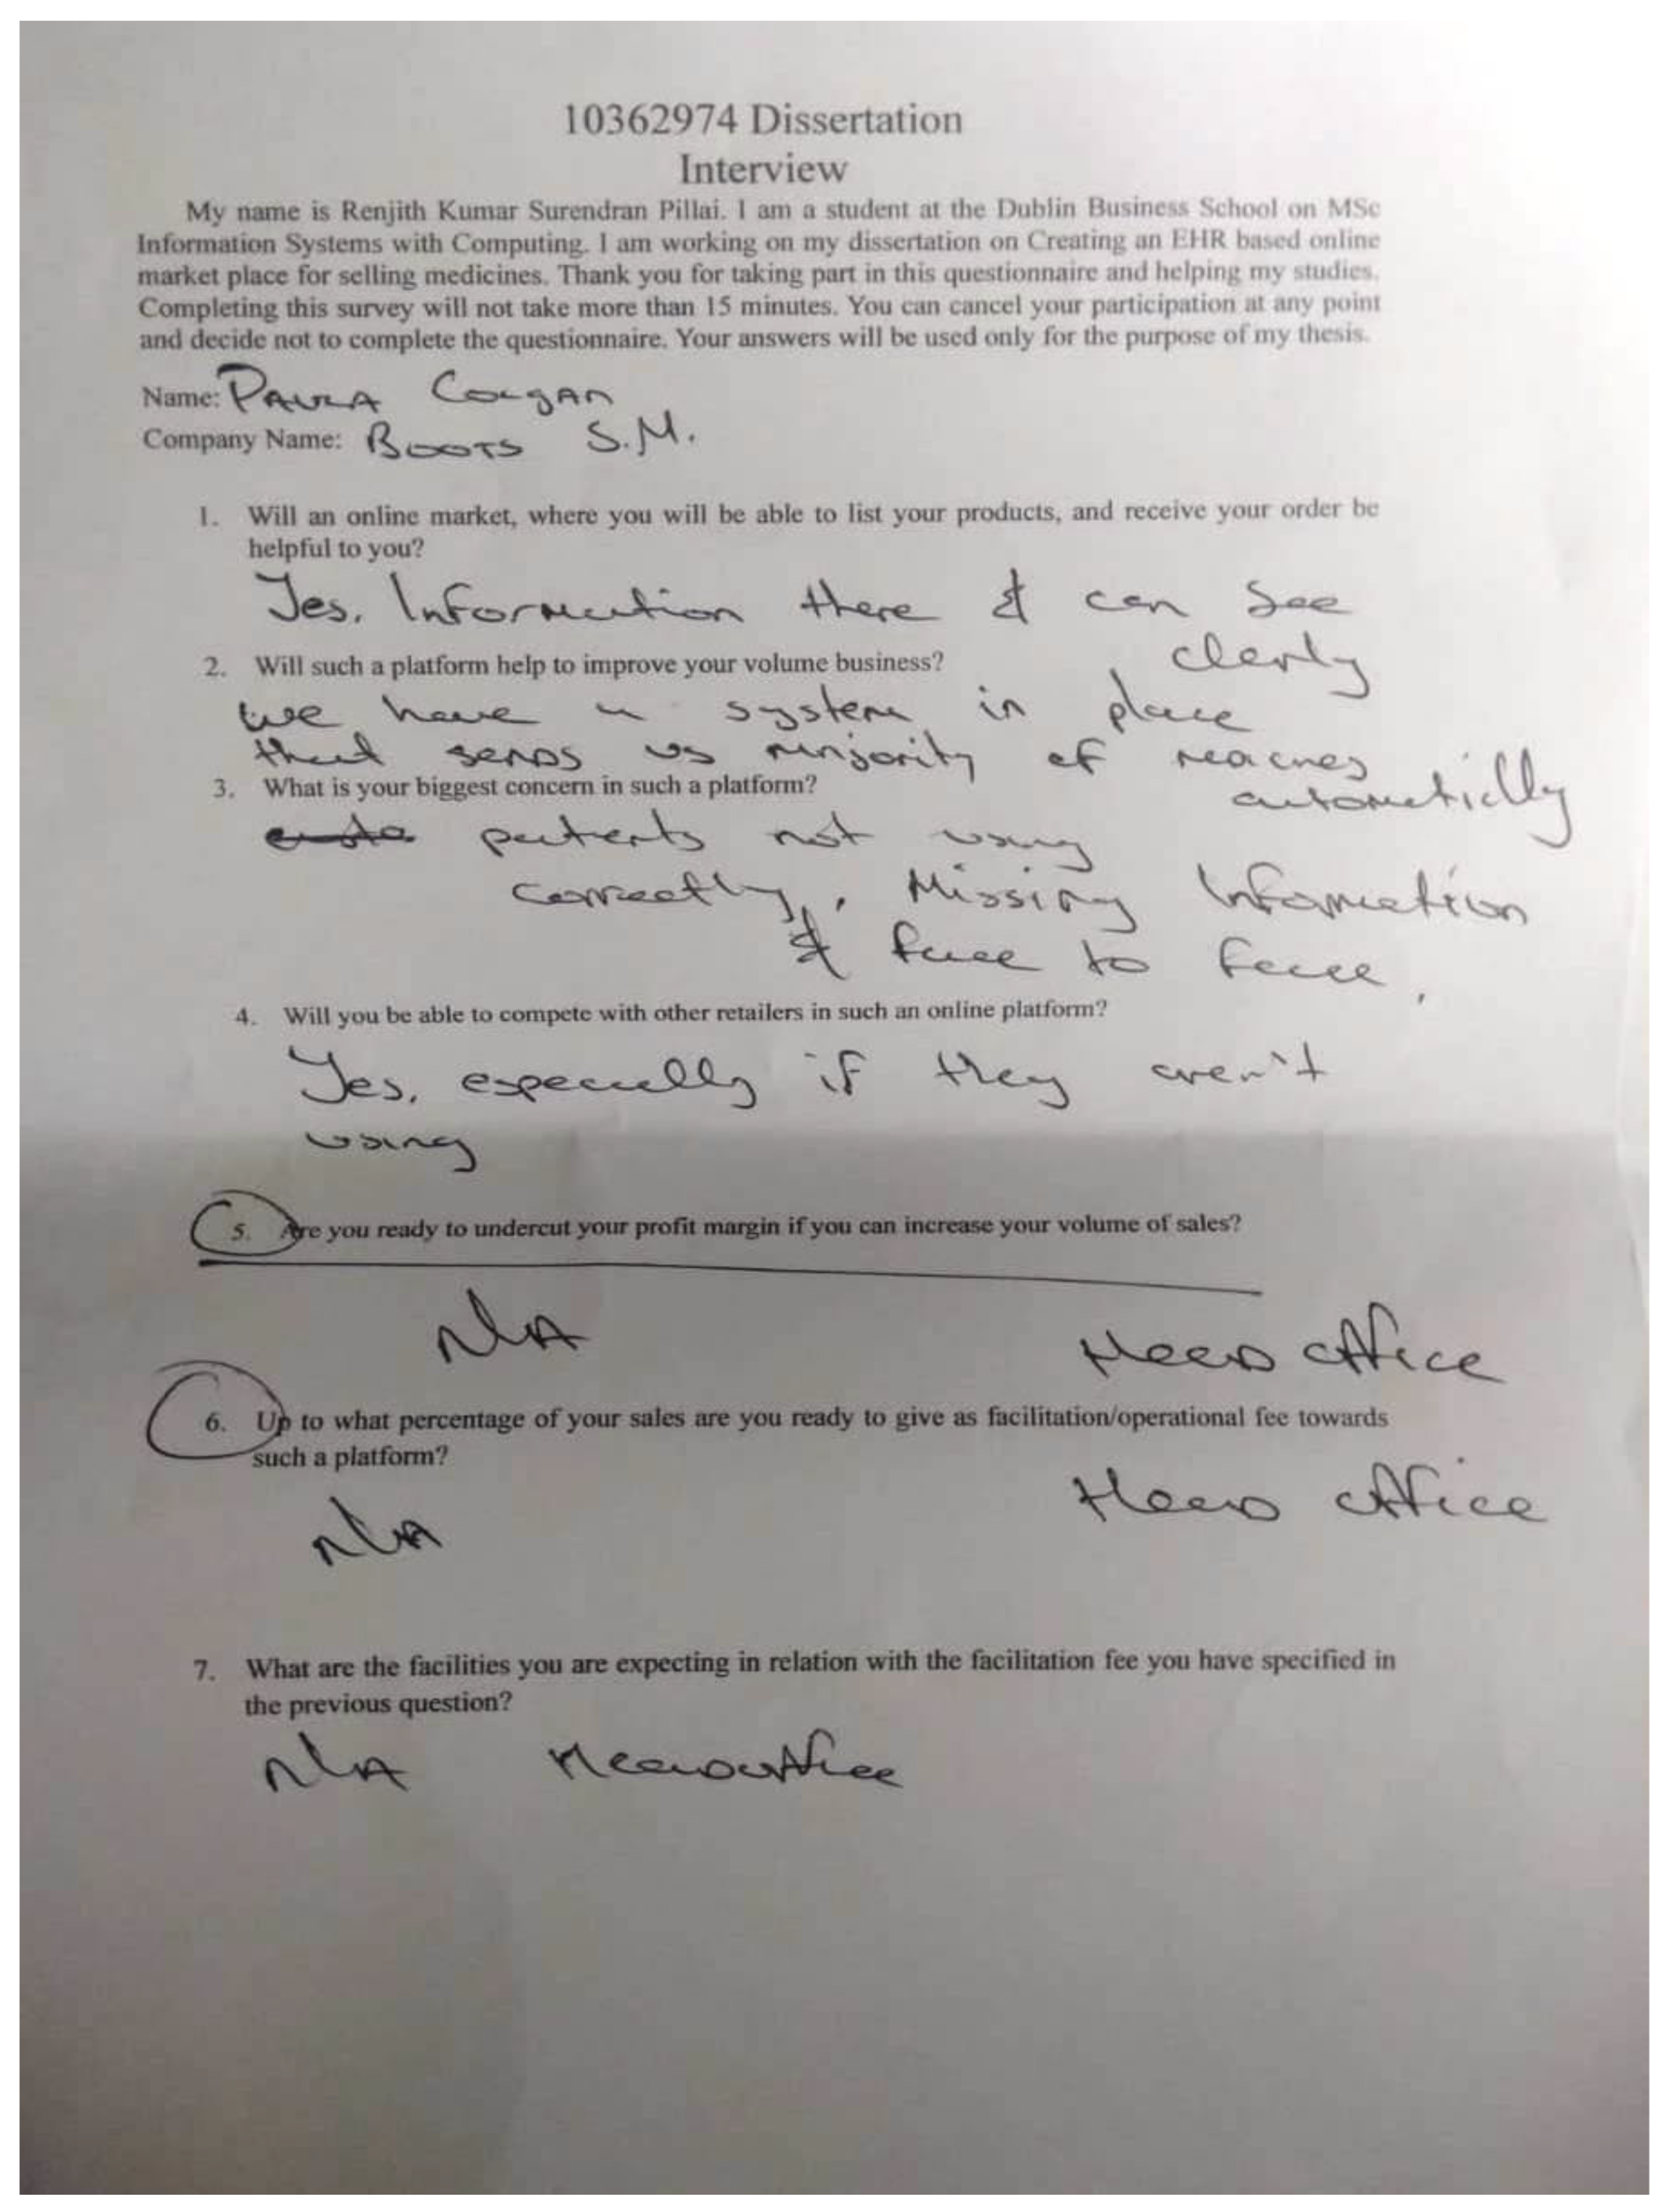 10362974 Dissertation
Interview
My name is Renjith Kumar Surendran Pillai. I am a student at the Dublin Business School on MSc
Information Systems with Computing. I am working on my dissertation on Creating an EHR based online
market place for selling medicines. Thank you for taking part in this questionnaire and helping my studies.
Completing this survey will not take more than 15 minutes. You can cancel your participation at any point
and decide not to complete the questionnaire. Your answers will be used only for the purpose of my thesis.
Name: PAULA
Company Name: BOOTS S.M.
1. Will an online market, where you will be able to list your products, and receive your order be
helpful to you?
Yes. Information there & can see
clearly
2. Will such a platform help to improve your volume business?
we have a system in place
that sends us majority of
automatically
3. What is your biggest concern in such a platform?
patients not using
correctly, Missing Information
& face to face.
4. Will you be able to compete with other retailers in such an online platform?
Yes, especially if they aren't
using
5. Are you ready to undercut your profit margin if you can increase your volume of sales?
N/A Head office
6. Up to what percentage of your sales are you ready to give as facilitation/operational fee towards
such a platform?
Head office
N/A
7. What are the facilities you are expecting in relation with the facilitation fee you have specified in
the previous question?
N/A Head office